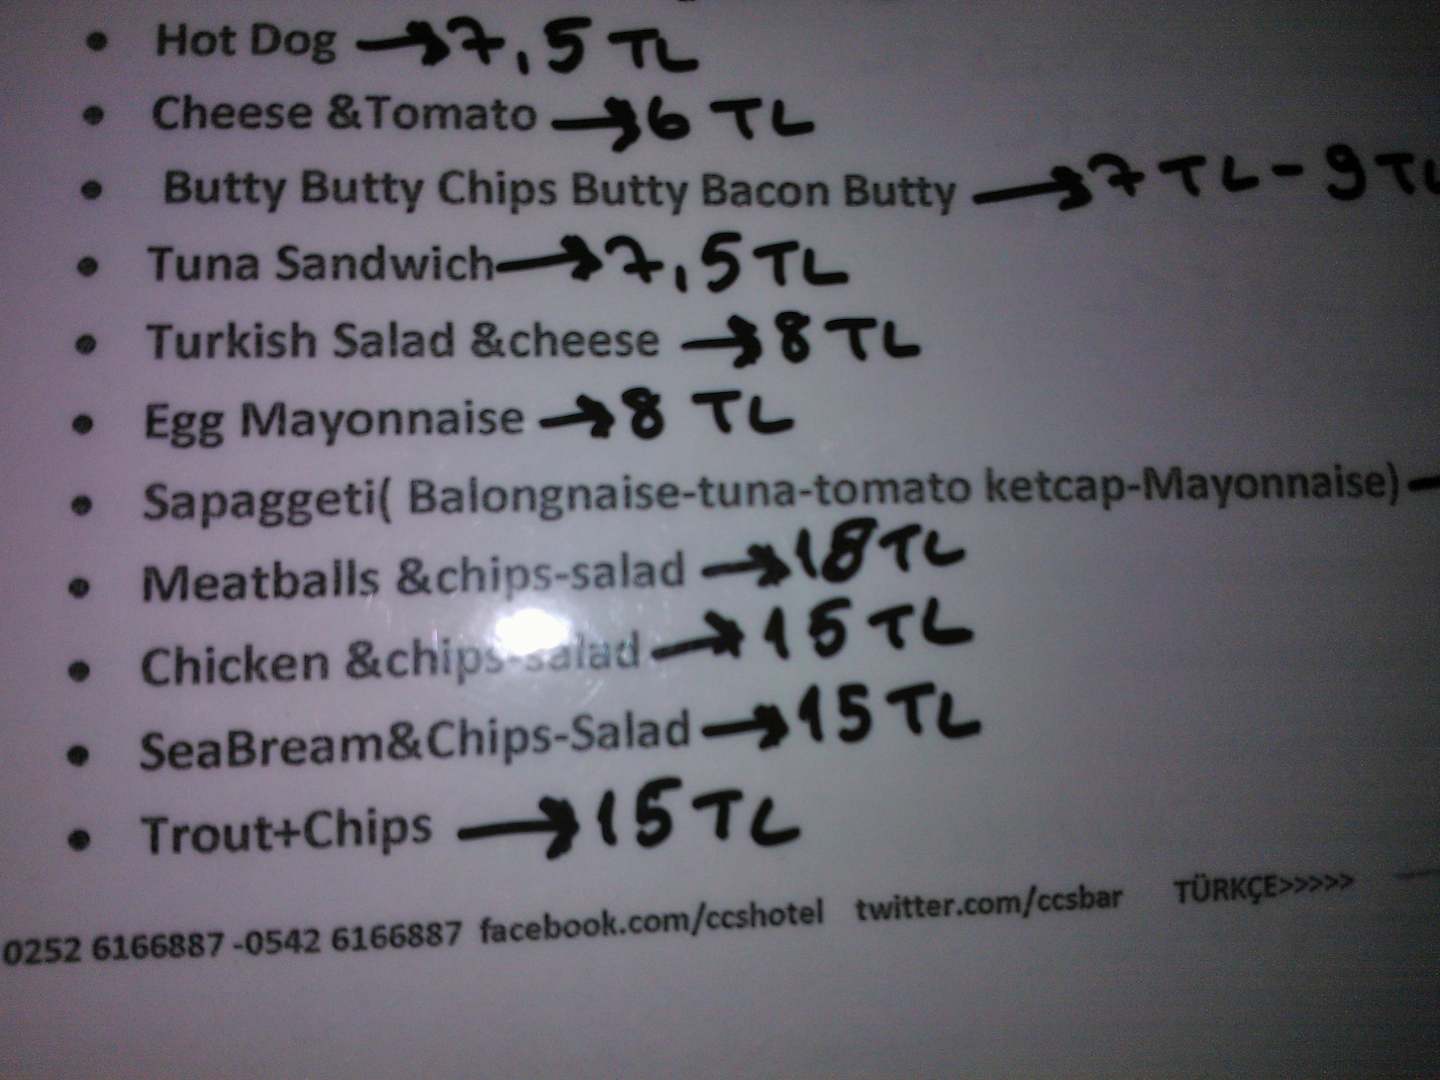 • Hot Dog →7,5 TL
• Cheese &Tomato →6 TL
• Butty Butty Chips Butty Bacon Butty →7 TL-9TL
• Tuna Sandwich→7,5TL
• Turkish Salad &cheese →8 TL
• Egg Mayonnaise →8 TL
• Sapaggeti( Balongnaise-tuna-tomato ketcap-Mayonnaise)
• Meatballs &chips-salad →18TL
• Chicken &chips-salad→15 TL
• SeaBream&Chips-Salad→15 TL
• Trout+Chips →15 TL
0252 6166887 -0542 6166887 facebook.com/ccshotel twitter.com/ccsbar TÜRKÇE>>>>>